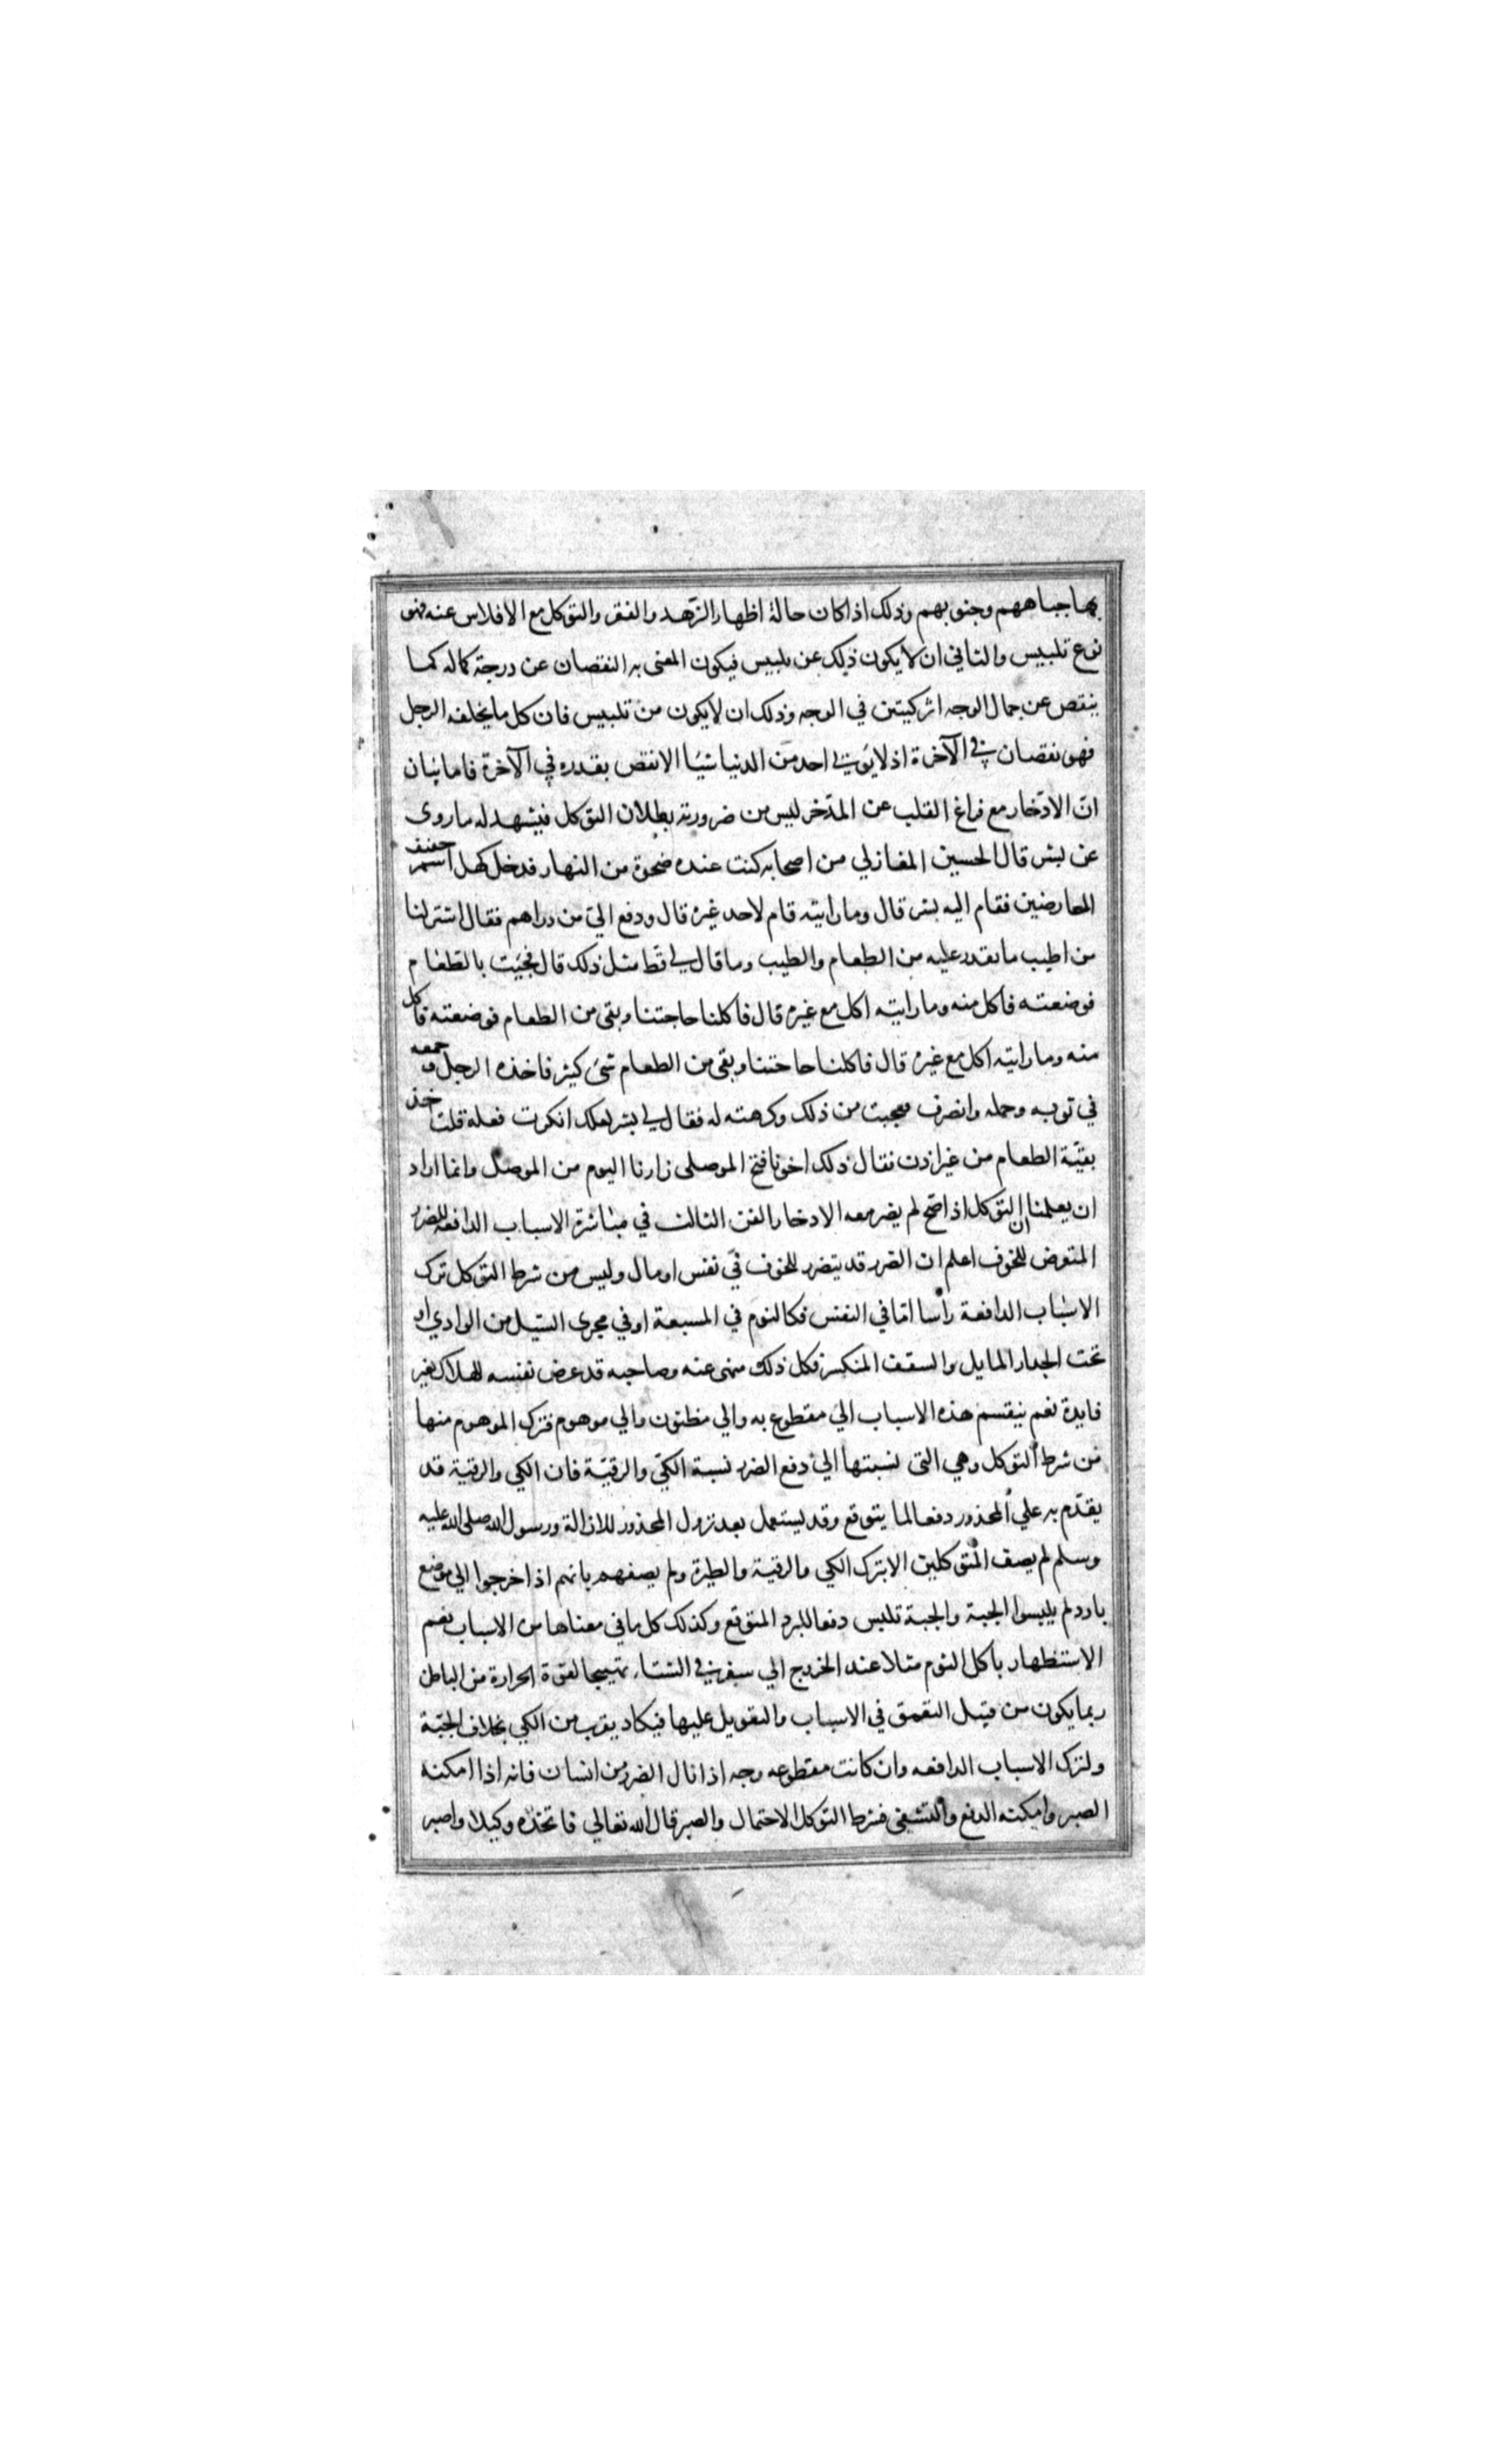 بها جباههم وجنوبهم وذلك اذا كان حالة اظهار الزهد والفقر والتوكل مع الافلاس عنه فهو
نوع تلبيس والثاني ان لا يكون ذلك عن تلبيس فيكون المعنى به النقصان عن درجة كماله كما
ينقص عن جمال الوجه اثر كيتين في الوجه وذلك ان لا يكون من تلبيس فان كل ما يخلفه الرجل
فهو نقصان في الآخرة اذ لا يؤتي احد من الدنيا شيا الا نقص بقدره في الآخرة فاما بيان
ان الادخار مع فراغ القلب عن المدخر ليس من ضرورته بطلان التوكل فيشهد له ما روى
عن بشر قال الحسين المغازلي من اصحابه كنت عنده ضحوة من النهار فدخل كهل اسمر خفيف
العارضين فقام اليه بشر قال وما رايته قام لاحد غيره قال ودفع الي من دراهم فقال اشتر لنا
من اطيب ما تقدر عليه من الطعام والطيب وما قال لي قط مثل ذلك قال فجيت بالطعام
فوضعته فاكل منه وما رايته اكل مع غيره قال فاكلنا حاجتنا وبقى من الطعام فوضعته فاكل
منه وما رايته اكل مع غيره قال فاكلنا حاجتنا وبقى من الطعام شئ كثير فاخذه الرجل وجمعه
في ثوبه وحمله وانصرف فعجبت من ذلك وكرهته له فقال لي بشر لعلك انكرت فعله قلت خذ
بقية الطعام من غير اذن فقال ذلك اخونا فتح الموصلى زارنا اليوم من الموصل وانما اراد
ان يعلمنا ان التوكل اذا صح لم يضر معه الادخار الفن الثالث في مباشرة الاسباب الدافعة للضرر
المتعرض للخوف اعلم ان الضرر قد يتضرر للخوف في نفس او مال وليس من شرط التوكل ترك
الاسباب الدافعة رأسا اما في النفس فكالنوم في المسبعة او في مجرى السيل من الوادي او
تحت الجدار المايل والسقف المنكسر فكل ذلك منهى عنه وصاحبه قد عرض نفسه للهلاك بغير
فايدة نعم ينقسم هذه الاسباب الي مقطوع به والي مظنون والي موهوم فترك الموهوم منها
من شرط التوكل وهي التى نسبتها الي دفع الضرر نسبة الكي والرقية فان الكي والرقية قد
يقدم به علي المحذور دفعا لما يتوقع وقد يستعمل بعد نزول المحذور للازالة ورسول الله صلى الله عليه
وسلم لم يصف المتوكلين الا بترك الكي والرقية والطيرة ولم يصفهم بانهم اذا خرجوا الي موضع
بارد لم يلبسوا الجبة والجبة تلبس دفعا للبرد المتوقع وكذلك كل ما في معناها من الاسباب نعم
الاستظهار باكل الثوم مثلا عند الخروج الي سفر في الشتاء تهييجا لقوة الحرارة من الباطن
ربما يكون من قبيل التعمق في الاسباب والتعويل عليها فيكاد يقرب من الكي بخلاف الجبة
ولترك الاسباب الدافعه وان كانت مقطوعه وجه اذا نال الضرر من انسان فانه اذا امكنه
الصبر وامكنه الدفع والتشفي فشرط التوكل الاحتمال والصبر قال الله تعالي فاتخذه وكيلا واصبر